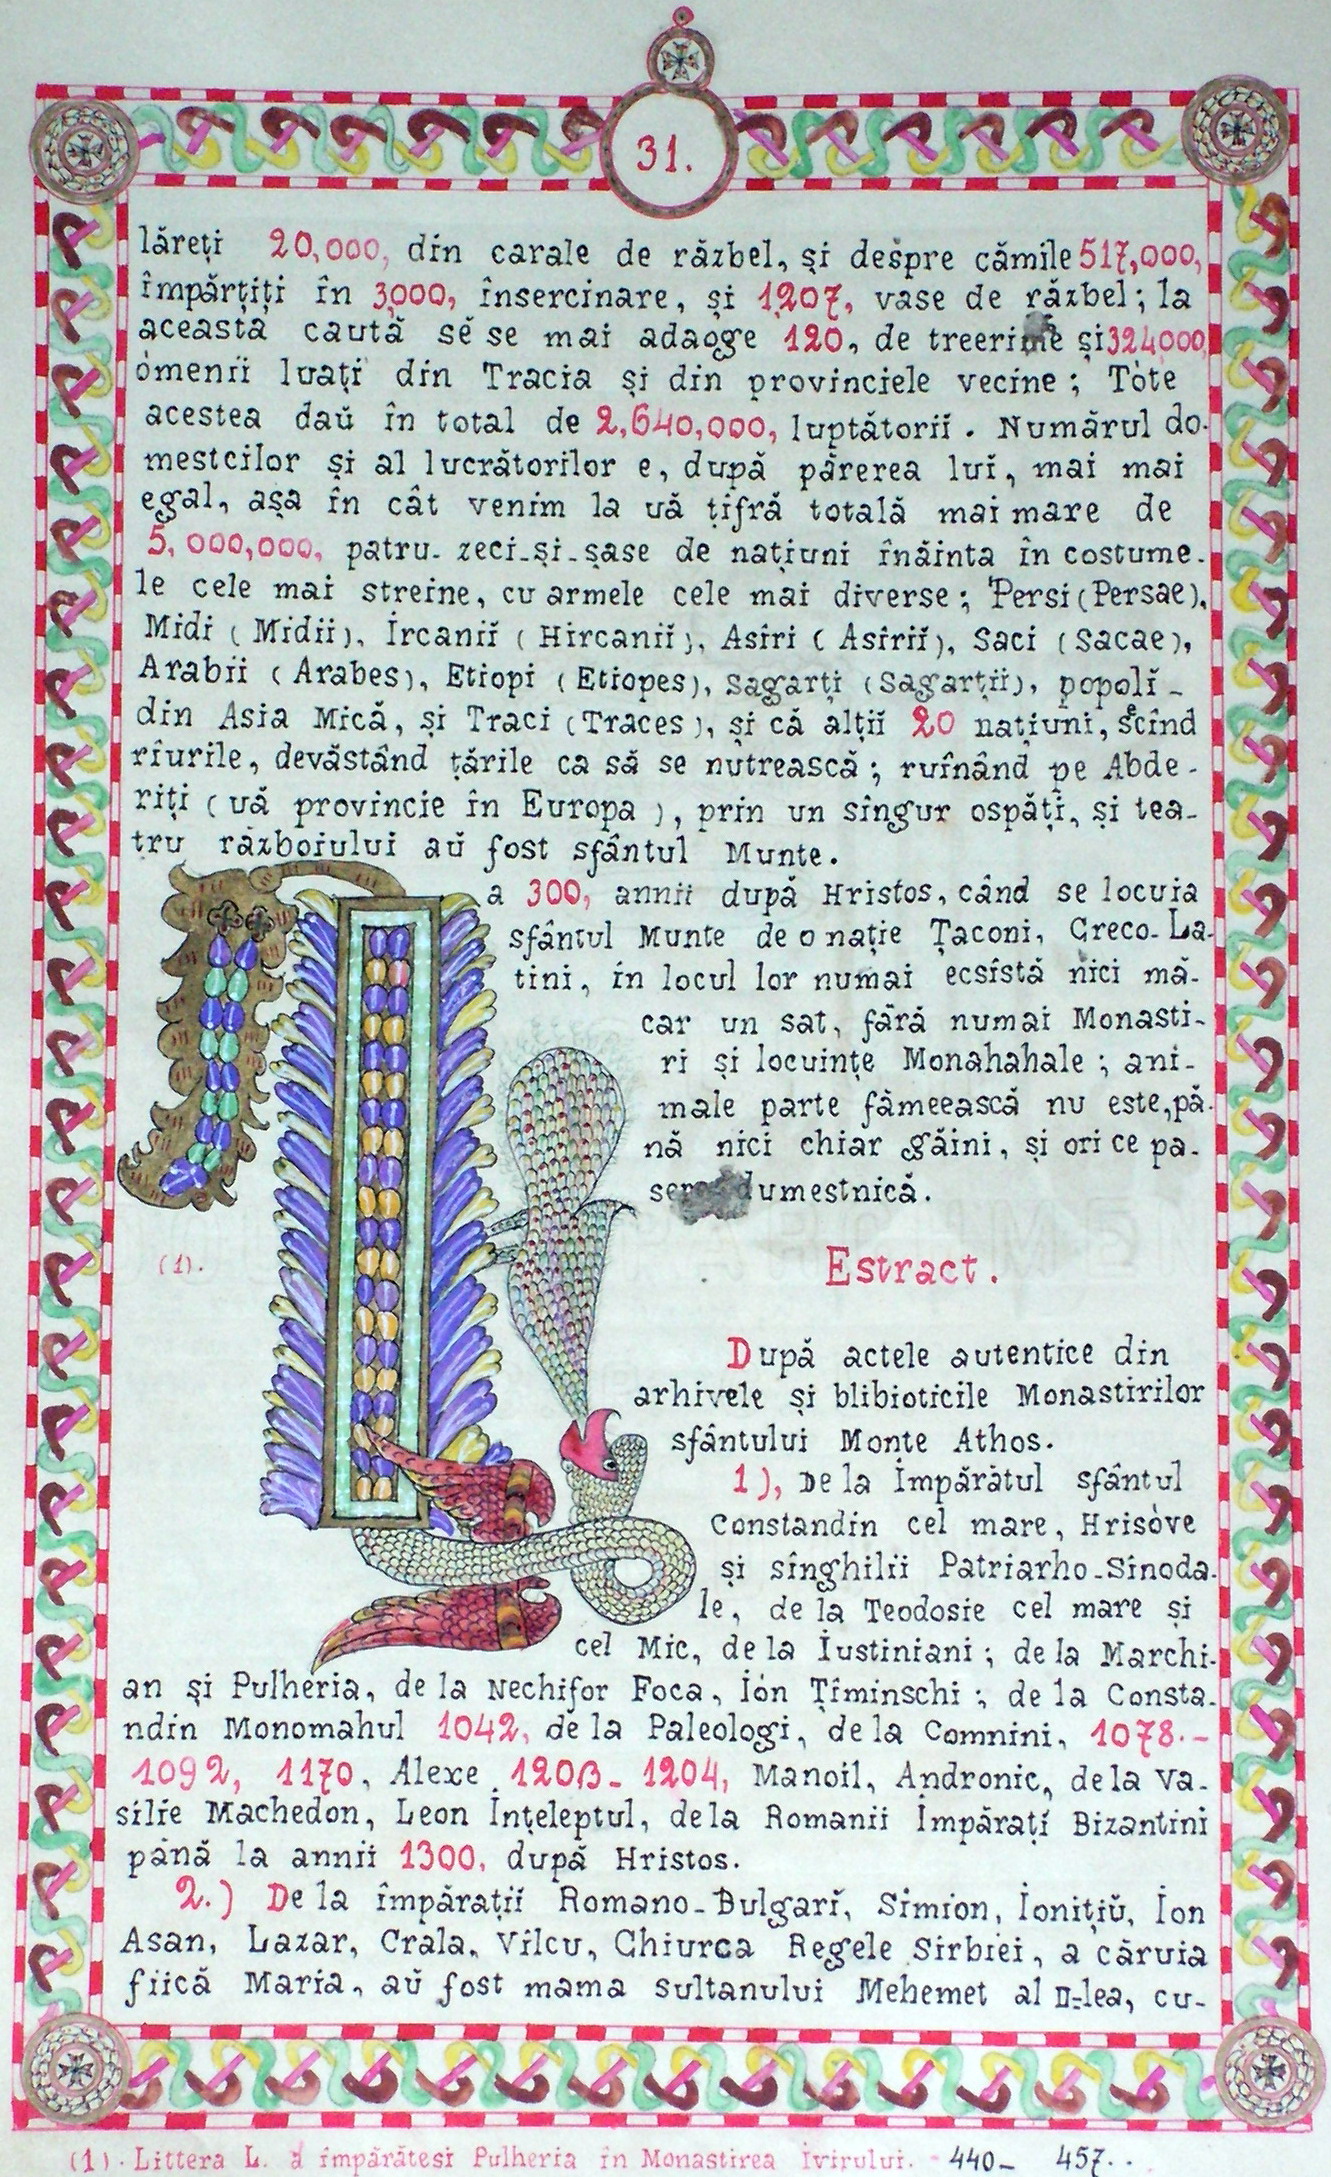 31.
lăreți 20,000, din carale de răzbel, și despre cămile 517,000,
împărțiți în 3,000, însercinare, și 1,207, vase de răzbel; la
aceasta caută sĕ se mai adaoge 120, de treerime și 324,000,
òmenii luați din Tracia și din provinciele vecine; Tòte
acestea daŭ în total de 2,640,000, luptătoriĭ. Numărul do-
mestcilor și al lucrătorilor e, după părerea luĭ, mai mai
egal, așa în cât venim la uă țifră totală mai mare de
5,000,000, patru-zeci-și-șase de națiuni înăinta în costume-
le cele mai streine, cu armele cele mai diverse; Persi (Persae),
Midi (Midii), Ircaniĭ (Hircaniĭ), Asiri (Asiriĭ), Saci (Sacae),
Arabii (Arabes), Etiopi (Etiopes), Sagarți (Sagarții), popolĭ-
din Asia Mică, și Traci (Traces), și că alțiĭ 20 națiuni, secînd
rîurile, devăstând țările ca să se nutrească; ruînând pe Abde-
riți (uă provincie în Europa), prin un singur ospăți, și tea-
tru războiului aŭ fost sfântul Munte.
La 300, annii după Hristos, când se locuia
sfântul Munte de o nație Țaconi, Greco-La-
tini, în locul lor numai ecsistă nici mă-
car un sat, fără numai Monasti-
ri și locuințe Monahahale; ani-
male parte fămeească nu este, pă-
nă nici chiar găini, și ori ce pa-
sere dumestnică.
(1).
Estract.
După actele autentice din
arhivele și blibioticile Monastirilor
sfântului Monte Athos.
1), De la Împărătul sfântul
Constandin cel mare, Hrisòve
și sînghilii Patriarho-Sinoda-
le, de la Teodosie cel mare și
cel Mic, de la Iustiniani; de la Marchi-
an și Pulheria, de la Nechifor Foca, Iòn Țîminschi; de la Consta-
ndin Monomahul 1042, de la Paleologi, de la Comnini, 1078.-
1092, 1170, Alexe 1203- 1204, Manoil, Andronic, de la Va-
silie Machedon, Leon Înțeleptul, de la Romanii Împărați Bizantini
până la annii 1300, după Hristos.
2.) De la împărațiĭ Romano-Bulgarĭ, Simion, Ionițiŭ, Ion
Asan, Lazar, Crala, Vilcu, Ghiurca Regele Sirbiei, a căruia
fiică Maria, aŭ fost mama sultanului Mehemet al II-lea, cu-
(1). Littera L. a împărătesi Pulheria în Monastirea Ivirului. 440- 457..